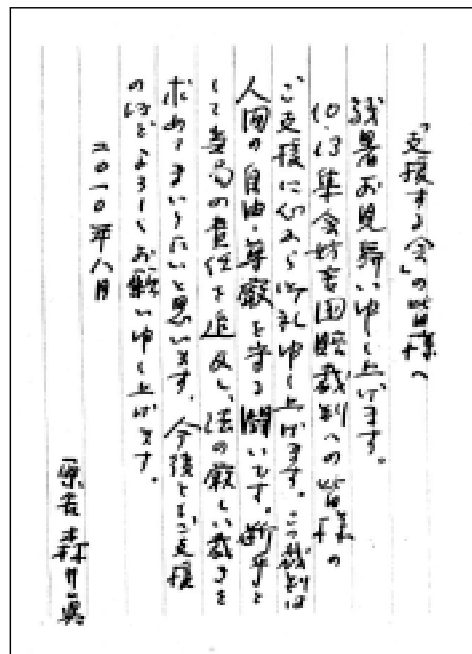 「支援する会」の皆様へ
残暑お見舞い申し上げます。
10・13集会妨害国賠裁判への皆様の
ご支援に心から御礼申し上げます。この裁判は
人間の自由・尊厳を守る闘いです。断乎と
して当局の責任を追及し、法の厳しい裁きを
求めてまいりたいと思います。今後ともご支援
のほどよろしくお願い申し上げます。
二〇一〇年八月
原告 森井眞